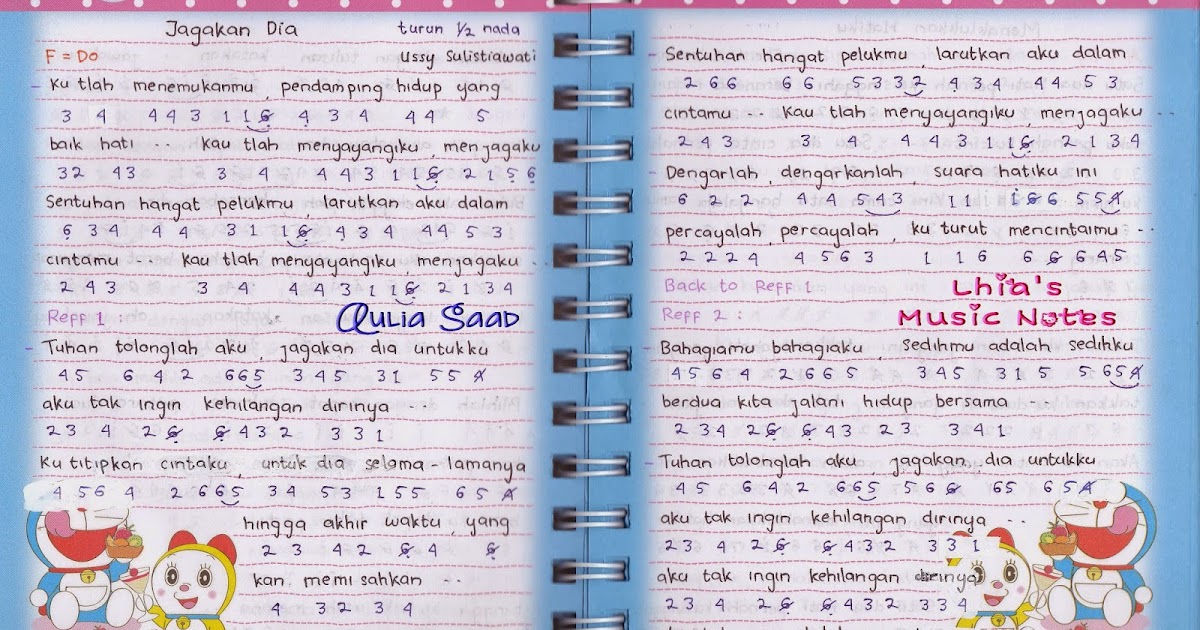 Jagakan Dia turun 1/2 nada
F = Do Ussy Sulistiawati
- Ku tlah menemukanmu, pendamping hidup yang
3 4 4 4 3 1 1 6 4 3 4 4 4 5
baik hati ... kau tlah menyayangiku, menjagaku
3 2 4 3 3 4 4 4 3 1 1 6 2 1 5 6
Sentuhan hangat pelukmu, larutkan aku dalam
6 3 4 4 4 3 1 1 6 4 3 4 4 4 5 3
cintamu ... kau tlah menyayangiku, menjagaku ..
2 4 3 3 4 4 4 3 1 1 6 2 1 3 4
Reff 1 : Aulia Saad
- Tuhan tolonglah aku, jagakan dia untukku
4 5 6 4 2 6 6 5 3 4 5 3 1 5 5 4
aku tak ingin kehilangan dirinya ...
2 3 4 2 6 6 4 3 2 3 3 1
Ku titipkan cintaku, untuk dia selama-lamanya
4 5 6 4 2 6 6 5 3 4 5 3 1 5 5 6 5 4
hingga akhir waktu, yang
2 3 4 2 6 4 6
kan memisahkan ..
4 3 2 3 4
- Sentuhan hangat pelukmu, larutkan aku dalam
2 6 6 6 6 5 3 3 2 4 3 4 4 4 5 3
cintamu ... kau tlah menyayangiku, menjagaku ..
2 4 3 3 4 4 4 3 1 1 6 2 1 3 4
- Dengarlah, dengarkanlah, suara hatiku ini
6 2 2 4 4 5 4 3 1 1 1 6 6 5 5 4
percayalah, percayalah, ku turut mencintaimu ..
2 2 2 4 4 5 6 3 1 1 6 6 6 6 4 5
Back to Reff 1 Lhia's
Reff 2 : Music Notes
Bahagiamu bahagiaku, sedihmu adalah sedihku
4 5 6 4 2 6 6 5 3 4 5 3 1 5 5 6 5 4
berdua kita jalani hidup bersama ...
2 3 4 2 6 6 4 3 2 3 3 4 1
- Tuhan tolonglah aku jagakan dia untukku
4 5 6 4 2 6 6 5 5 6 6 6 5 6 5 4
aku tak ingin kehilangan dirinya ...
2 3 4 2 6 6 4 3 2 3 3 1
aku tak ingin kehilangan dirinya
2 3 4 2 6 6 4 3 2 3 3 4